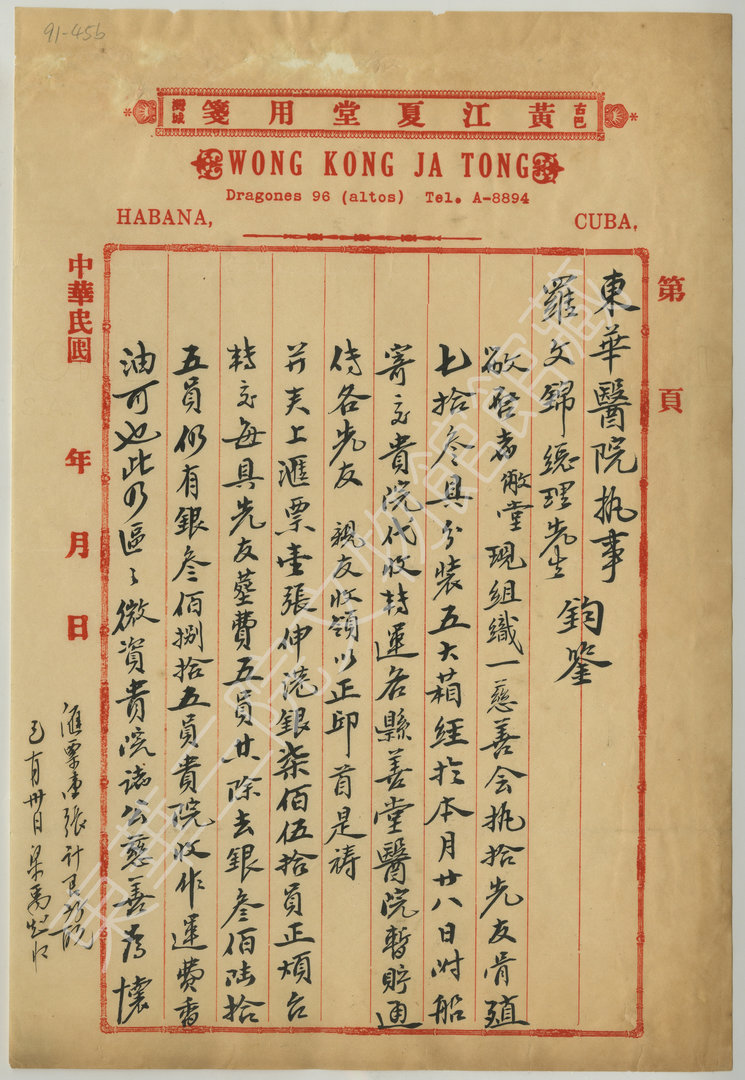 91-45b
古巴 黃江夏堂用箋 灣城
WONG KONG JA TONG
Dragones 96 (altos) Tel. A-8894
HABANA, CUBA,
第 頁
東華醫院執事
羅文錦總理先生 鈞鑒
敬啓者敝堂現組織一慈善会執拾先友骨殖
七拾叁具分裝五大箱経於本月廿八日附船
寄交貴院代收轉運各縣善堂醫院暫貯通
侍各先友 親友收領以正邱首是禱
并夾上滙票壹張伸港銀柒佰伍拾員正煩台
轉交每具先友葬費五員共除去銀叁佰陆拾
五員仍有銀叁佰捌拾五員貴院收作運費香
油可也此乃區々微資貴院諸公慈善為懷
中華民國 年 月 日
滙票壹張計
月卅日梁
東華三院文物館館藏